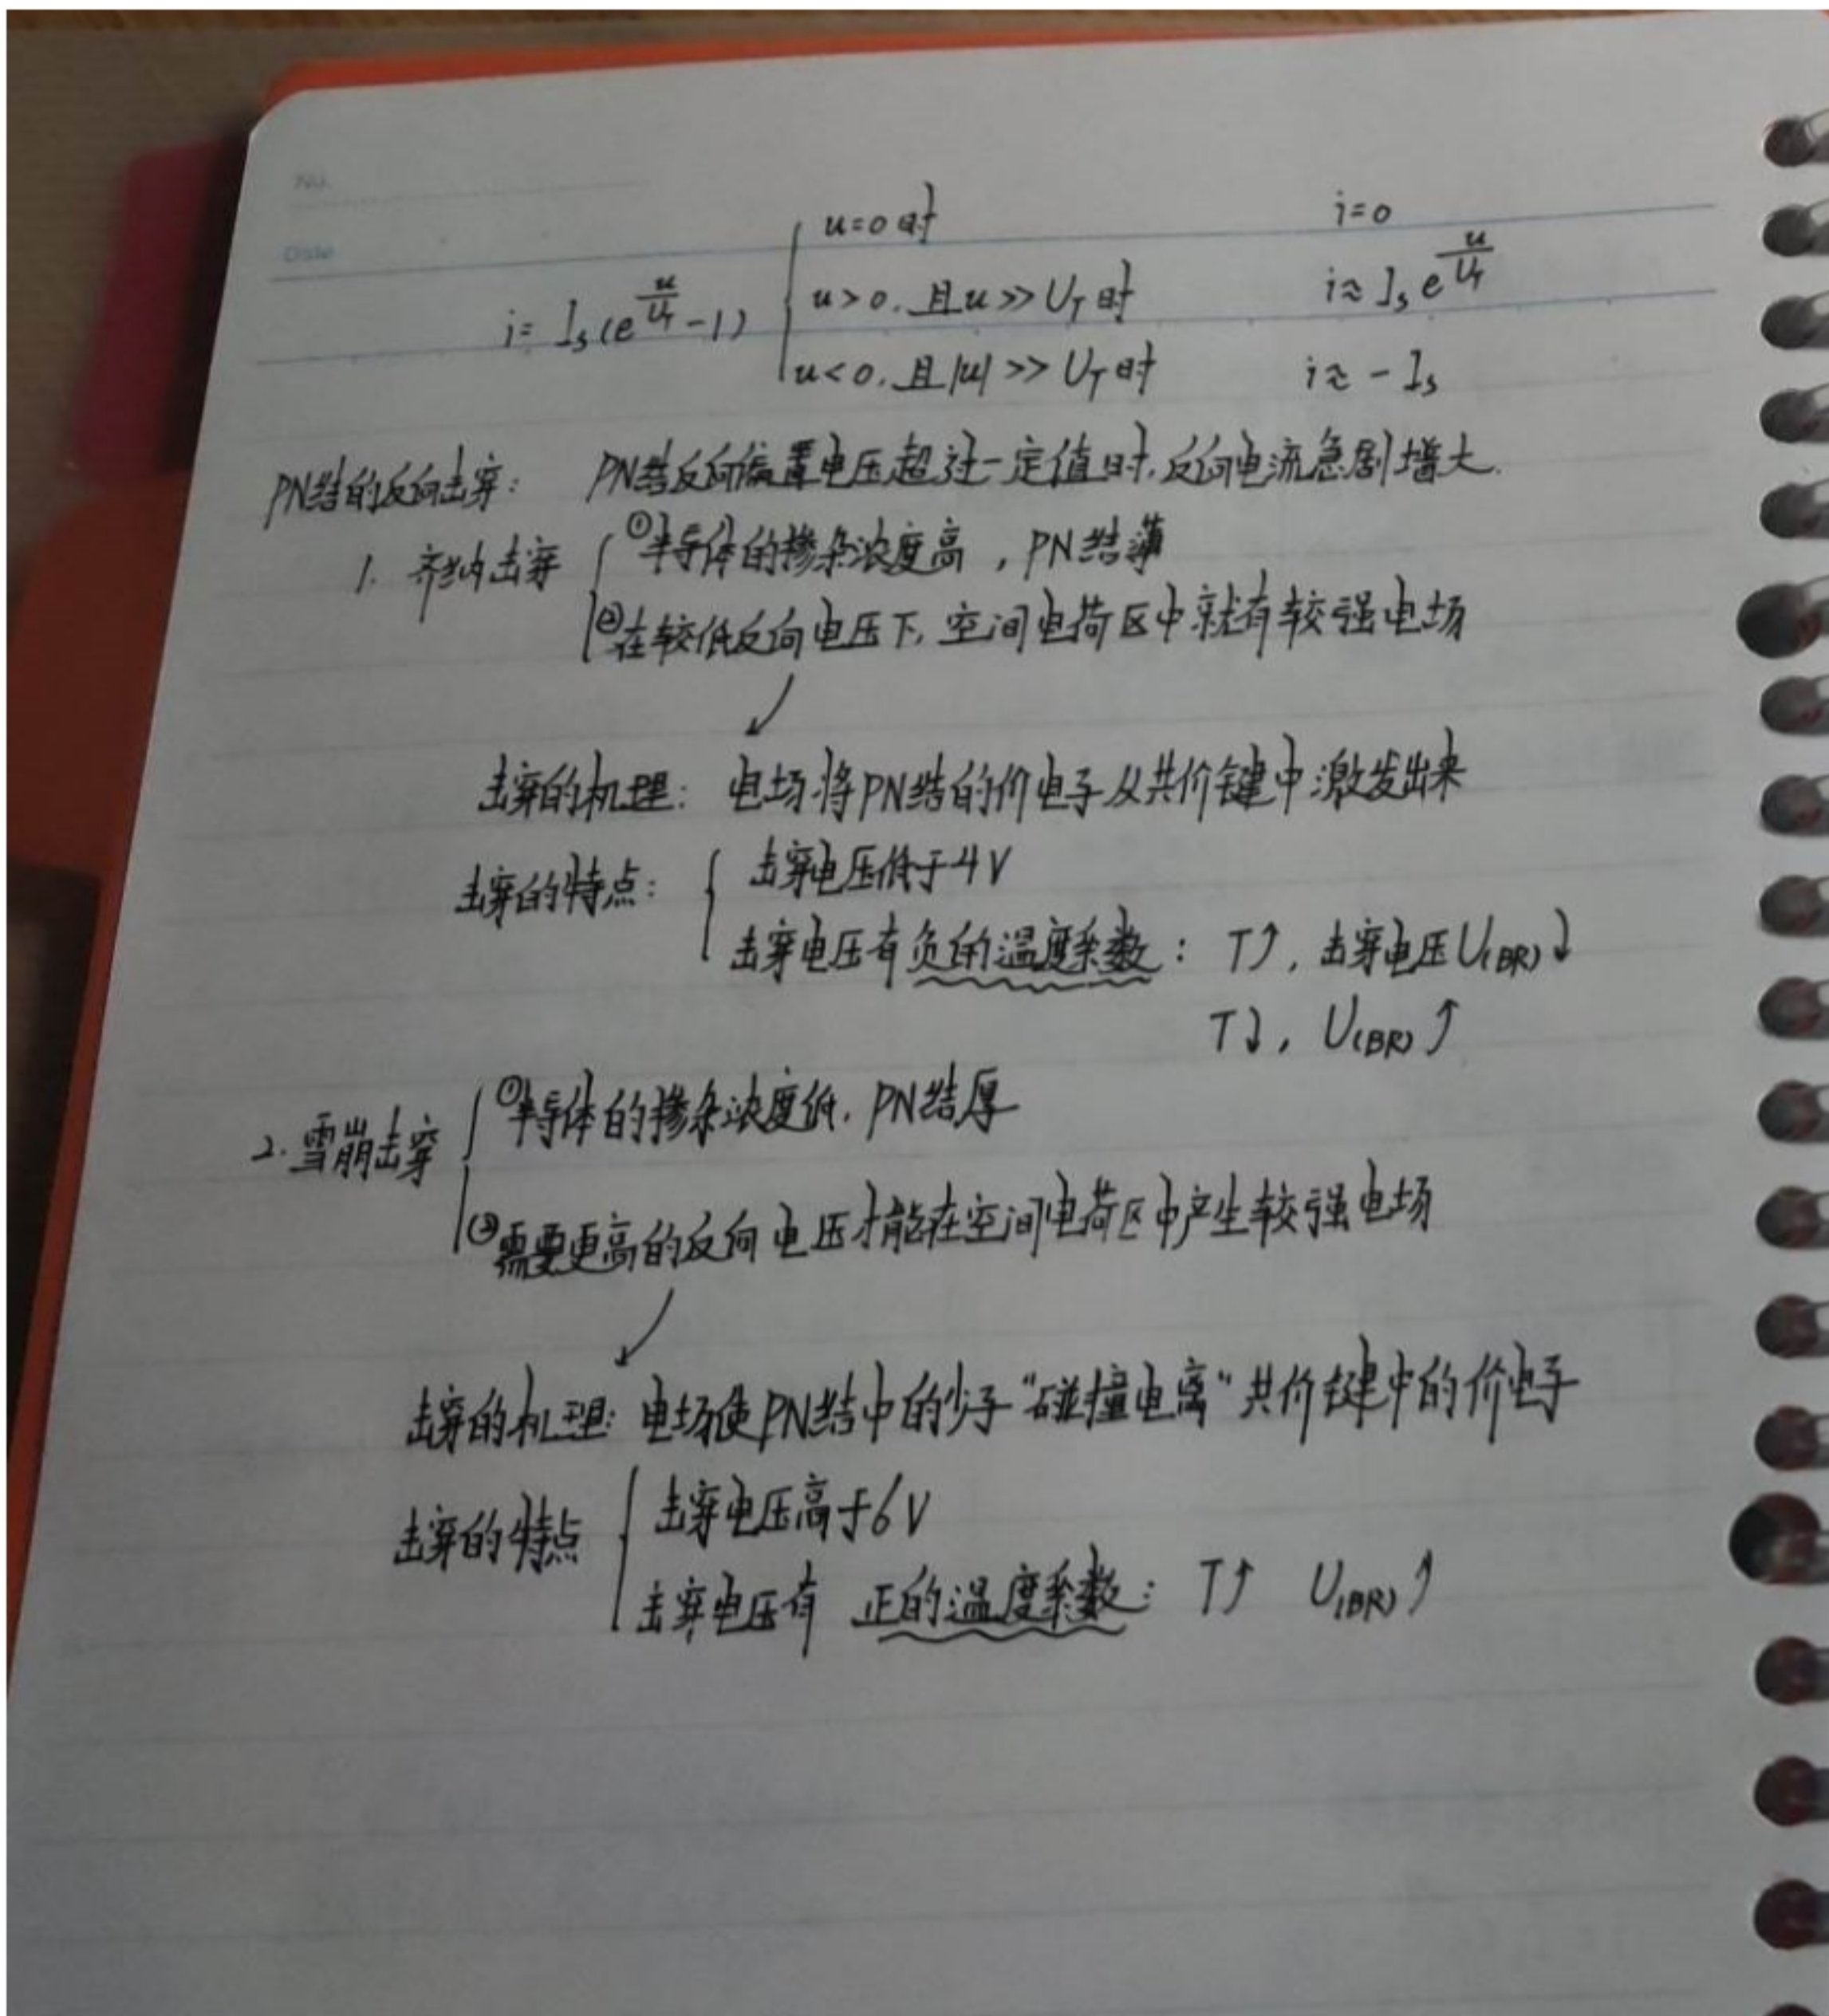 No.
Date
u=0时 i=0
i= Is(e^{u/U_T}-1) { u>0.且u>>U_T时 i≈Is e^{u/U_T}
u<0.且|u|>>U_T时 i≈-Is
PN结的反向击穿: PN结反向偏置电压超过一定值时.反向电流急剧增大.
1. 齐纳击穿 { ①半导体的掺杂浓度高,PN结薄
②在较低反向电压下,空间电荷区中就有较强电场
↙
击穿的机理: 电场将PN结的价电子从共价键中激发出来
击穿的特点: { 击穿电压低于4V
击穿电压有负的温度系数: T↑,击穿电压U(BR)↓
T↓, U(BR)↑
2.雪崩击穿 { ①半导体的掺杂浓度低.PN结厚
②需要更高的反向电压才能在空间电荷区中产生较强电场
↙
击穿的机理:电场使PN结中的少子"碰撞电离"共价键中的价电子
击穿的特点 { 击穿电压高于6V
击穿电压有 正的温度系数: T↑ U(BR)↑